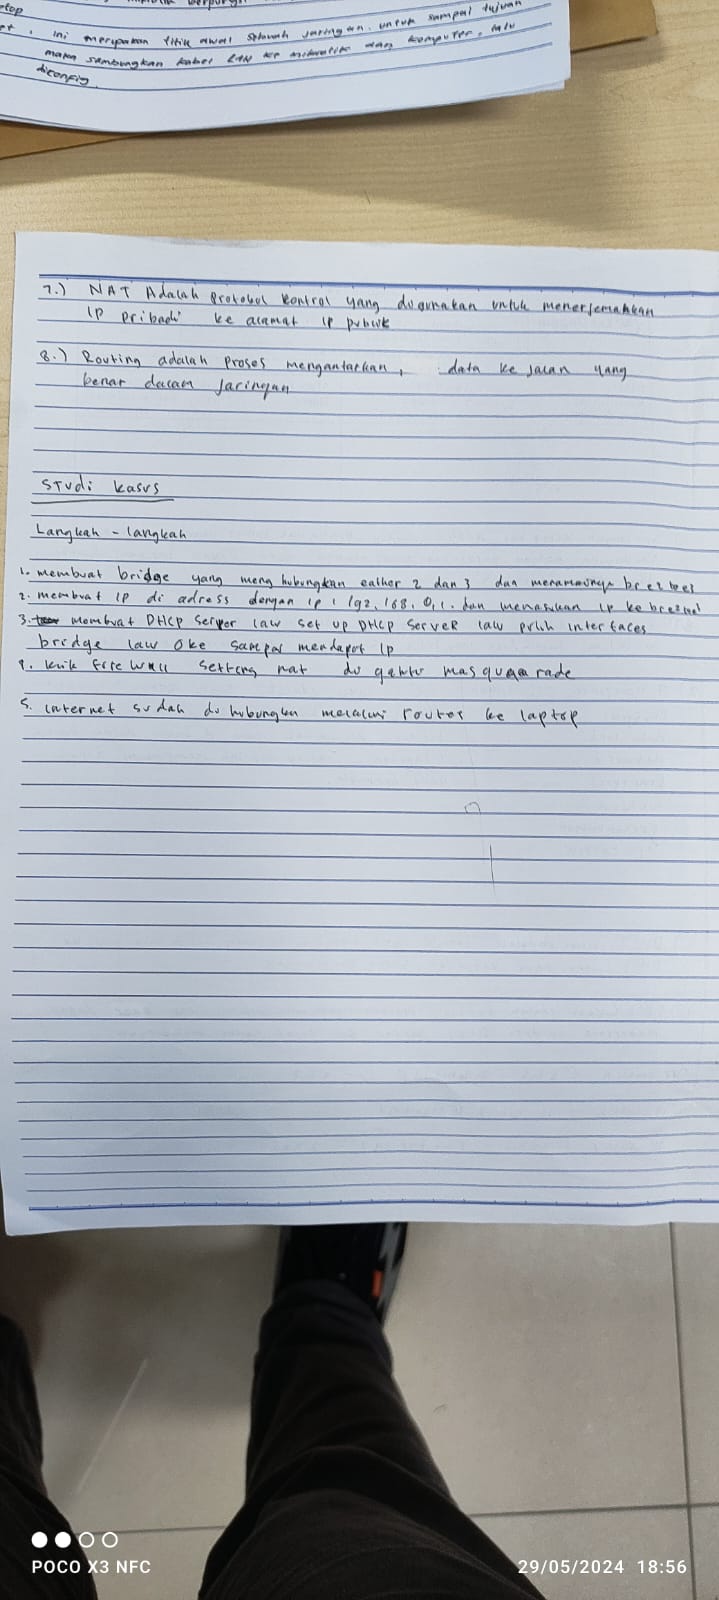 ini merupakan titik awal sebuah jaringan. untuk sampai tujuan
maka sambungkan kabel LAN ke mikrotik dan komputer, lalu
diconfig.
7.) NAT Adalah protokol kontrol yang digunakan untuk menerjemahkan
IP pribadi ke alamat IP publik
8.) Routing adalah proses mengantarkan, data ke jalan yang
benar dalam jaringan
Studi kasus
Langkah - langkah
1. membuat bridge yang menghubungkan eather 2 dan 3 dan menamainya
2. membuat IP di adress dengan ip : 192.168.0.1. dan menasukan IP ke
3. membuat DHCP Server law set up DHCP Server law pilih interfaces
bridge law oke sampai mendapat IP
4. klik firewall setting nat di ganti masquarade
5. internet sudah di hubungkan melalui router ke laptop
POCO X3 NFC
29/05/2024 18:56